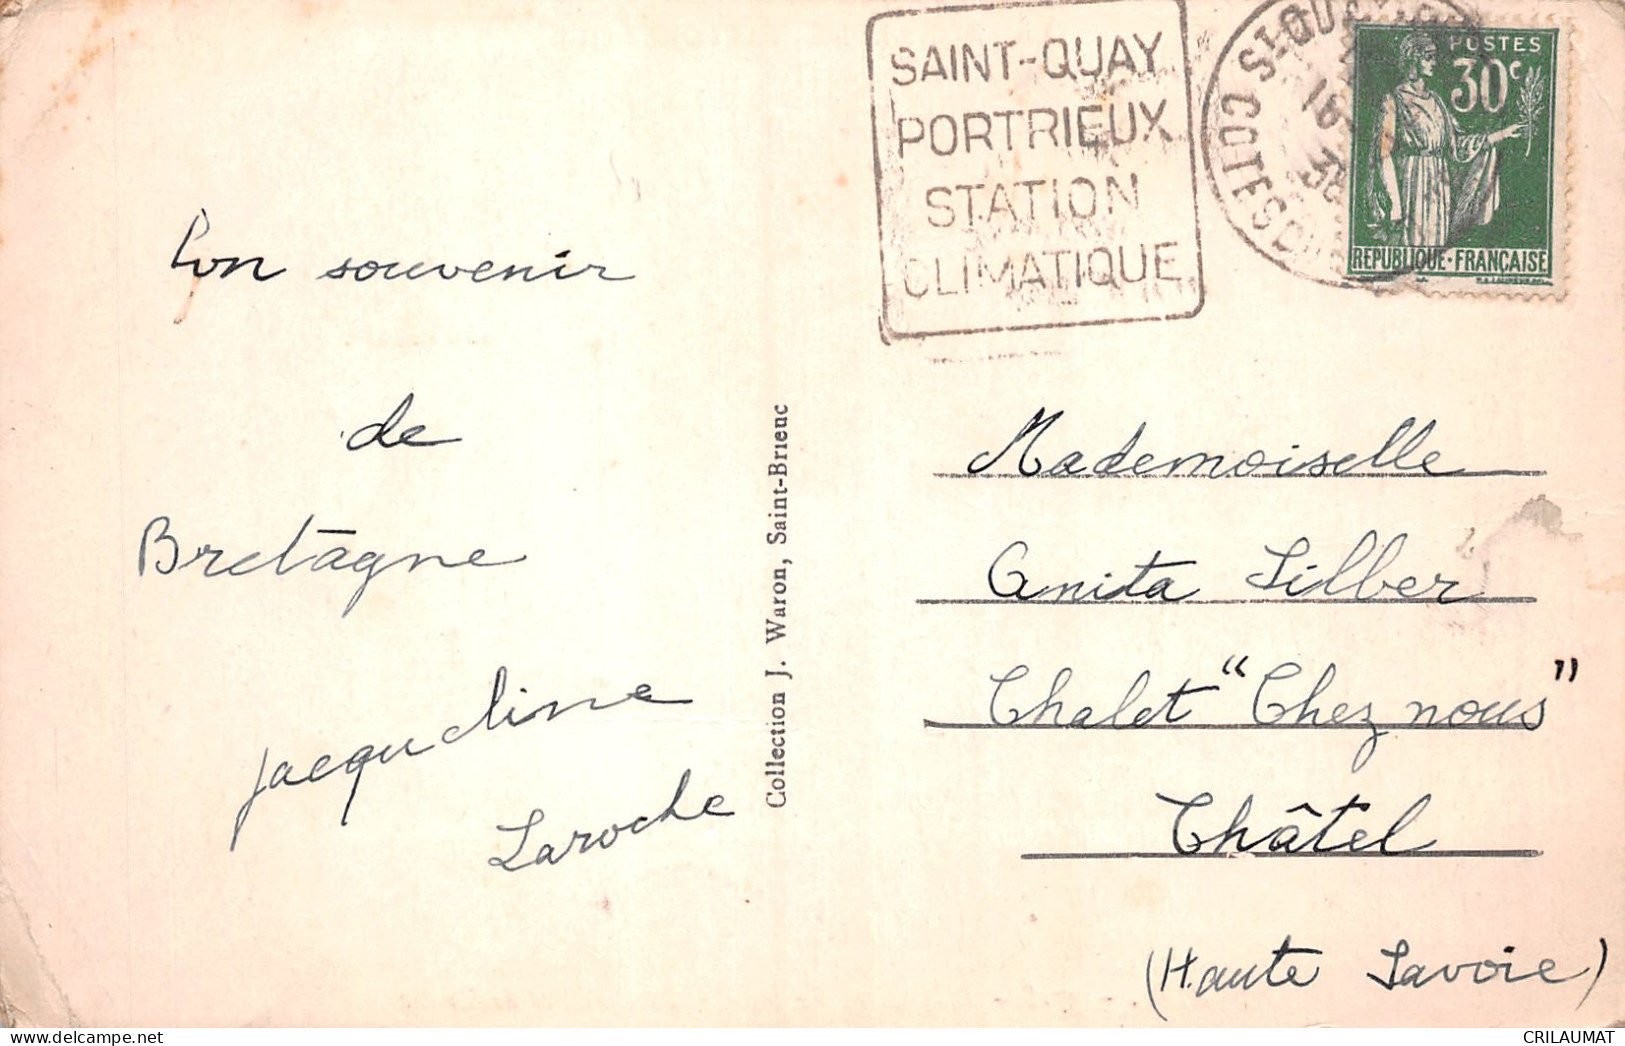 SAINT-QUAY
PORTRIEUX
STATION
CLIMATIQUE
COTES DU
POSTES
30c
REPUBLIQUE·FRANÇAISE
Bon souvenir
de
Bretagne
Jacqueline
Laroche
Collection J. Waron, Saint-Brieuc
Mademoiselle
Anita Silber
Chalet "Chez nous"
Châtel
(Haute Savoie)
CRILAUMAT